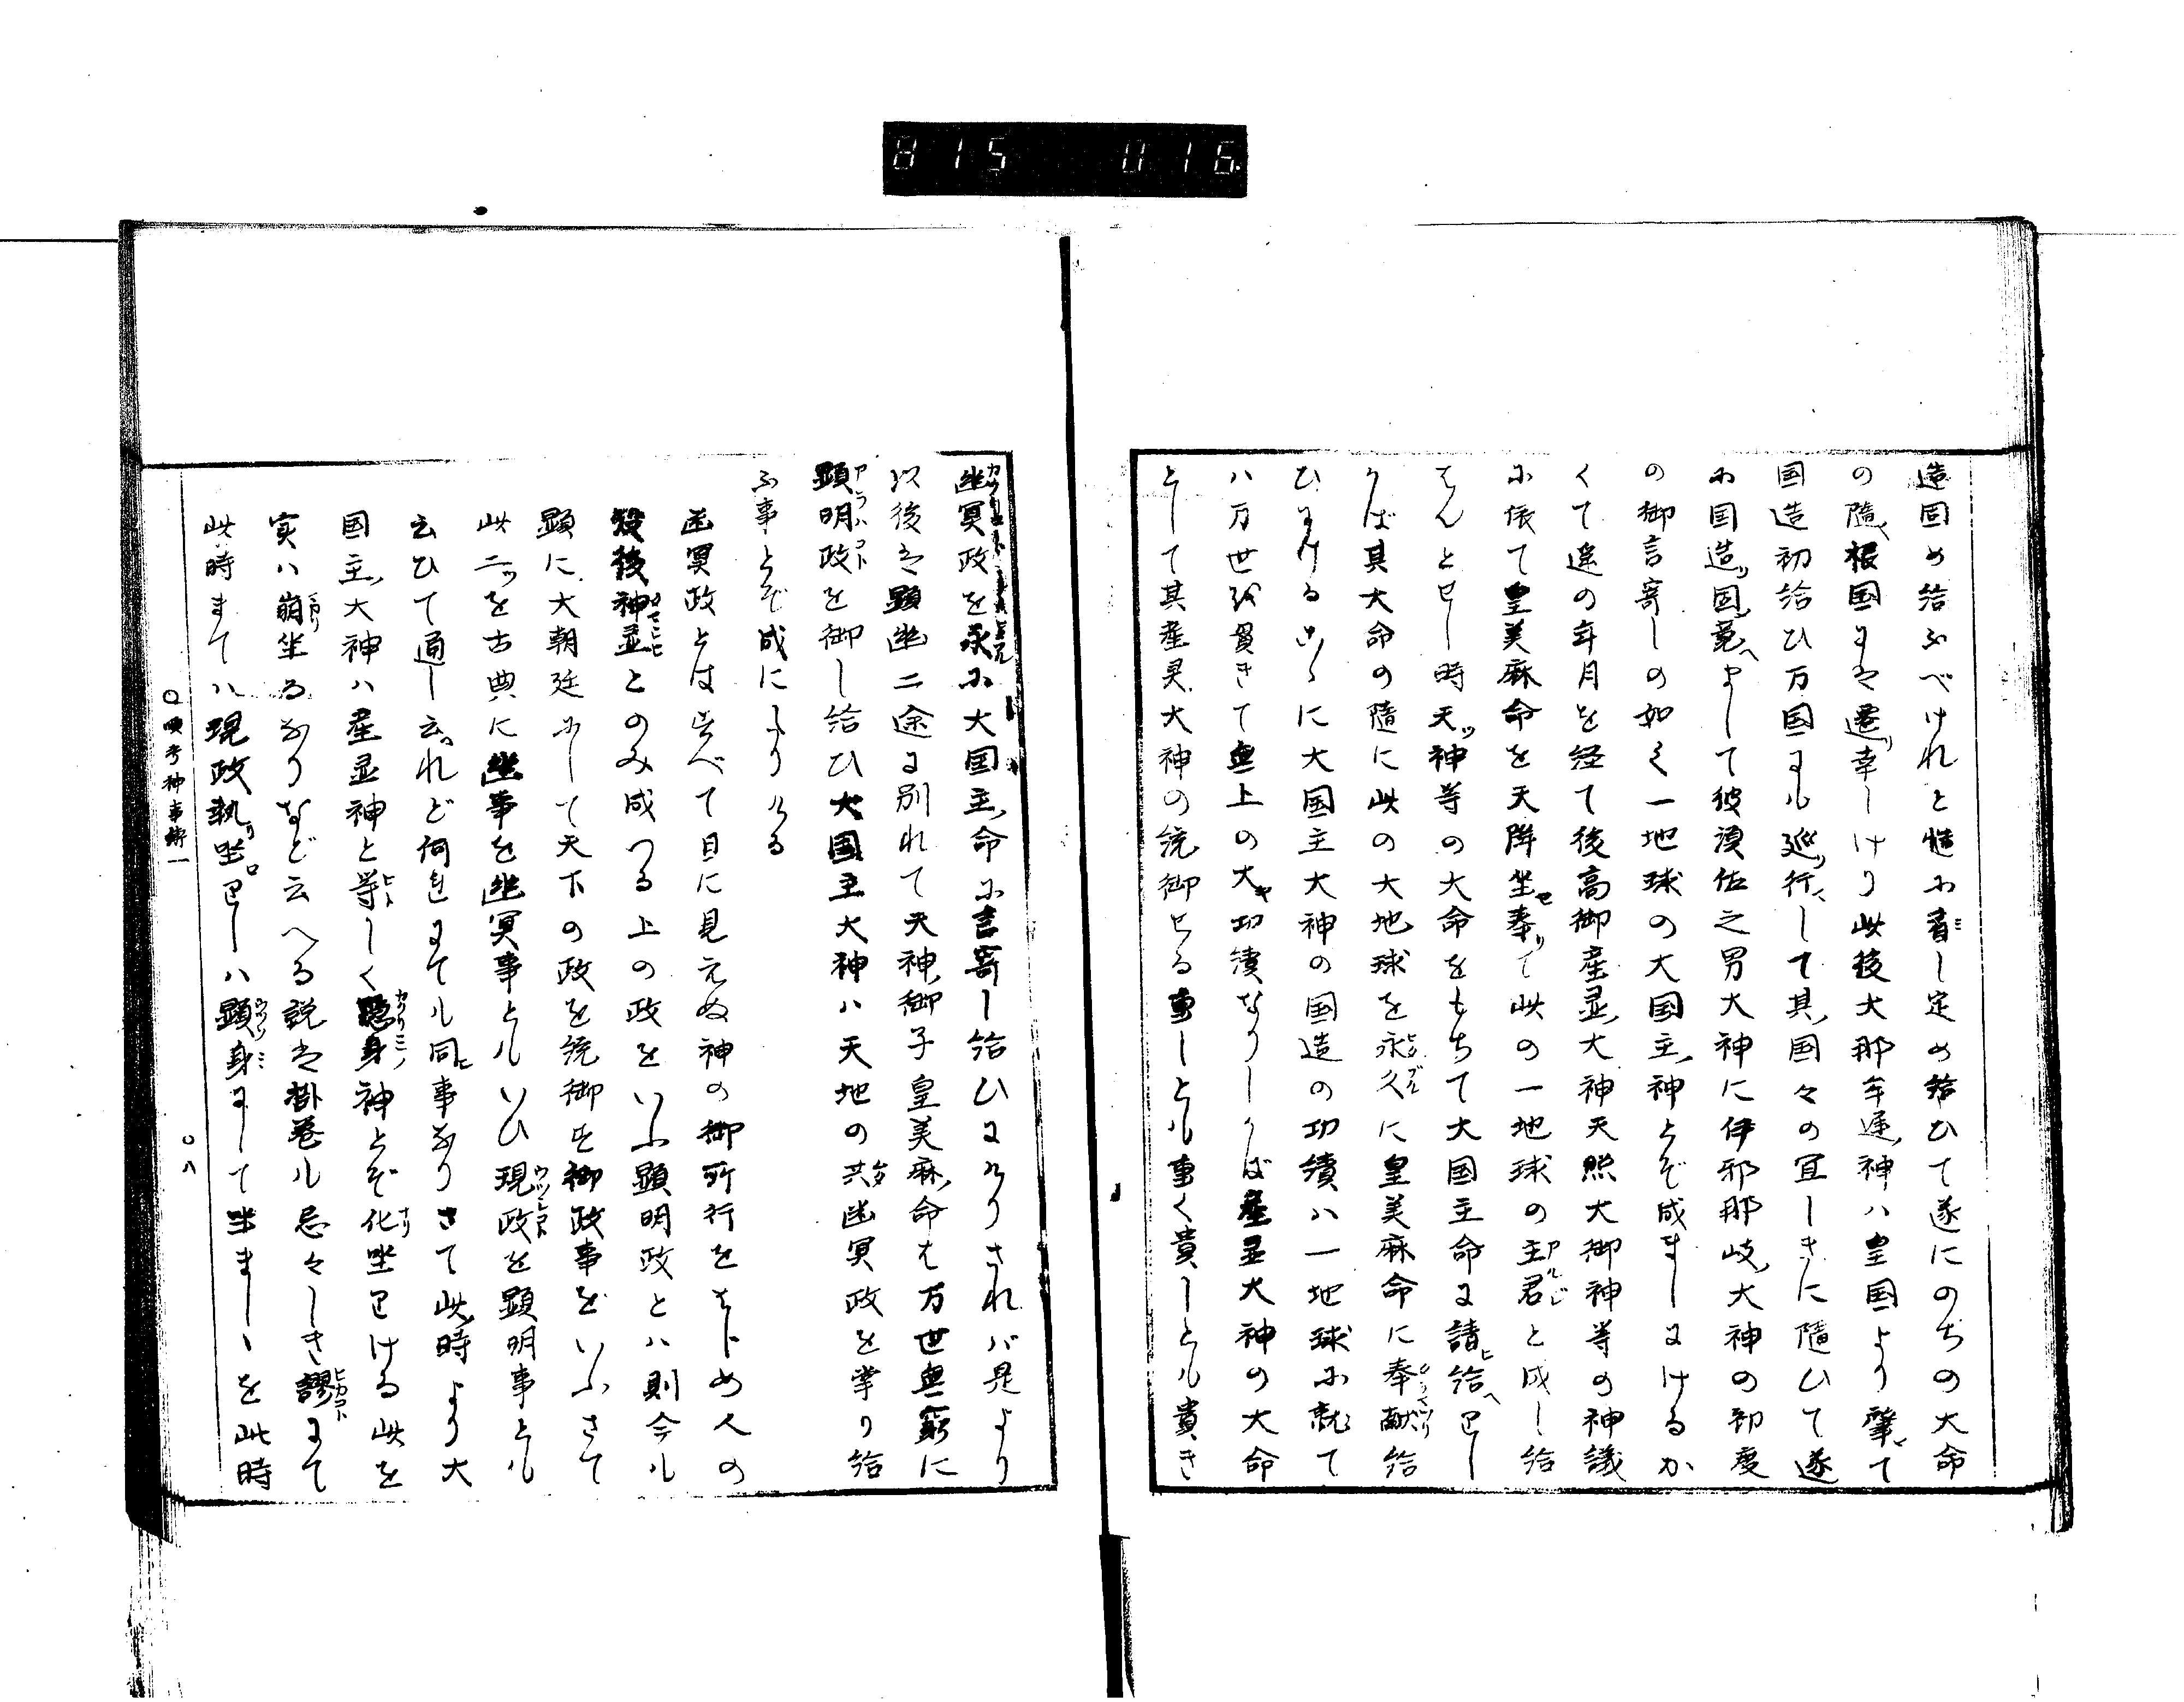 815 016
造固め給ふべけれと慥に看し定め給ひて遂にのぢの大命
の随、根国まで還幸しけり此後大那牟遅、神ハ皇国より肇て
国造初給ひ万国まも巡行して其国々の宜しきに随ひて遂
に国造、国竟まして彼須佐之男大神に伊邪那岐、大神の初度
の御言寄しの如く一地球の大国主、神とぞ成ましまけるか
くて遥の年月を経て後高御産霊、大神天照大御神等の神議
に依て皇美麻命を天降坐奉りて此の一地球の主君と成し給
はんとせし時天ッ神等の大命をもちて大国主命ま請給へせし
かば其大命の随に此の大地球を永久に皇美麻命に奉献給
ひまける如に大国主大神の国造の功績ハ一地球に就て
ハ万世を貫きて無上の大キ功績なりしかば産霊大神の大命
として其産灵大神の統御せる事しとも事く貴しとも貴き
幽冥政を永に大国主、命に言寄し給ひまけりされバ是より
以後は顕幽二途ま別れて天神、御子皇美麻、命は万世無窮に
顕明政を御し給ひ大国主大神ハ天地の共幽冥政を掌り給
ふ事とぞ成にたりける
幽冥政とは凡べて目に見えぬ神の御所行をはじめ人の
殁後神霊とのみ成つる上の政をいふ顕明政とハ則今も
顕に大朝廷にして天下の政を統御す御政事をいふさて
此二ッを古典に幽事を幽冥事ともいひ現政を顕明事とも
云ひて通し云れど何をまても同事なりさて此時より大
国主、大神ハ産霊神と等しく隠身神とぞ化坐せける此を
実ハ崩坐るなりなど云へる説は掛巻も忌々しき謬まて
此時まてハ現政執坐せしハ顕身まして坐ましゝを此時
〇顕考神事術一
〇八